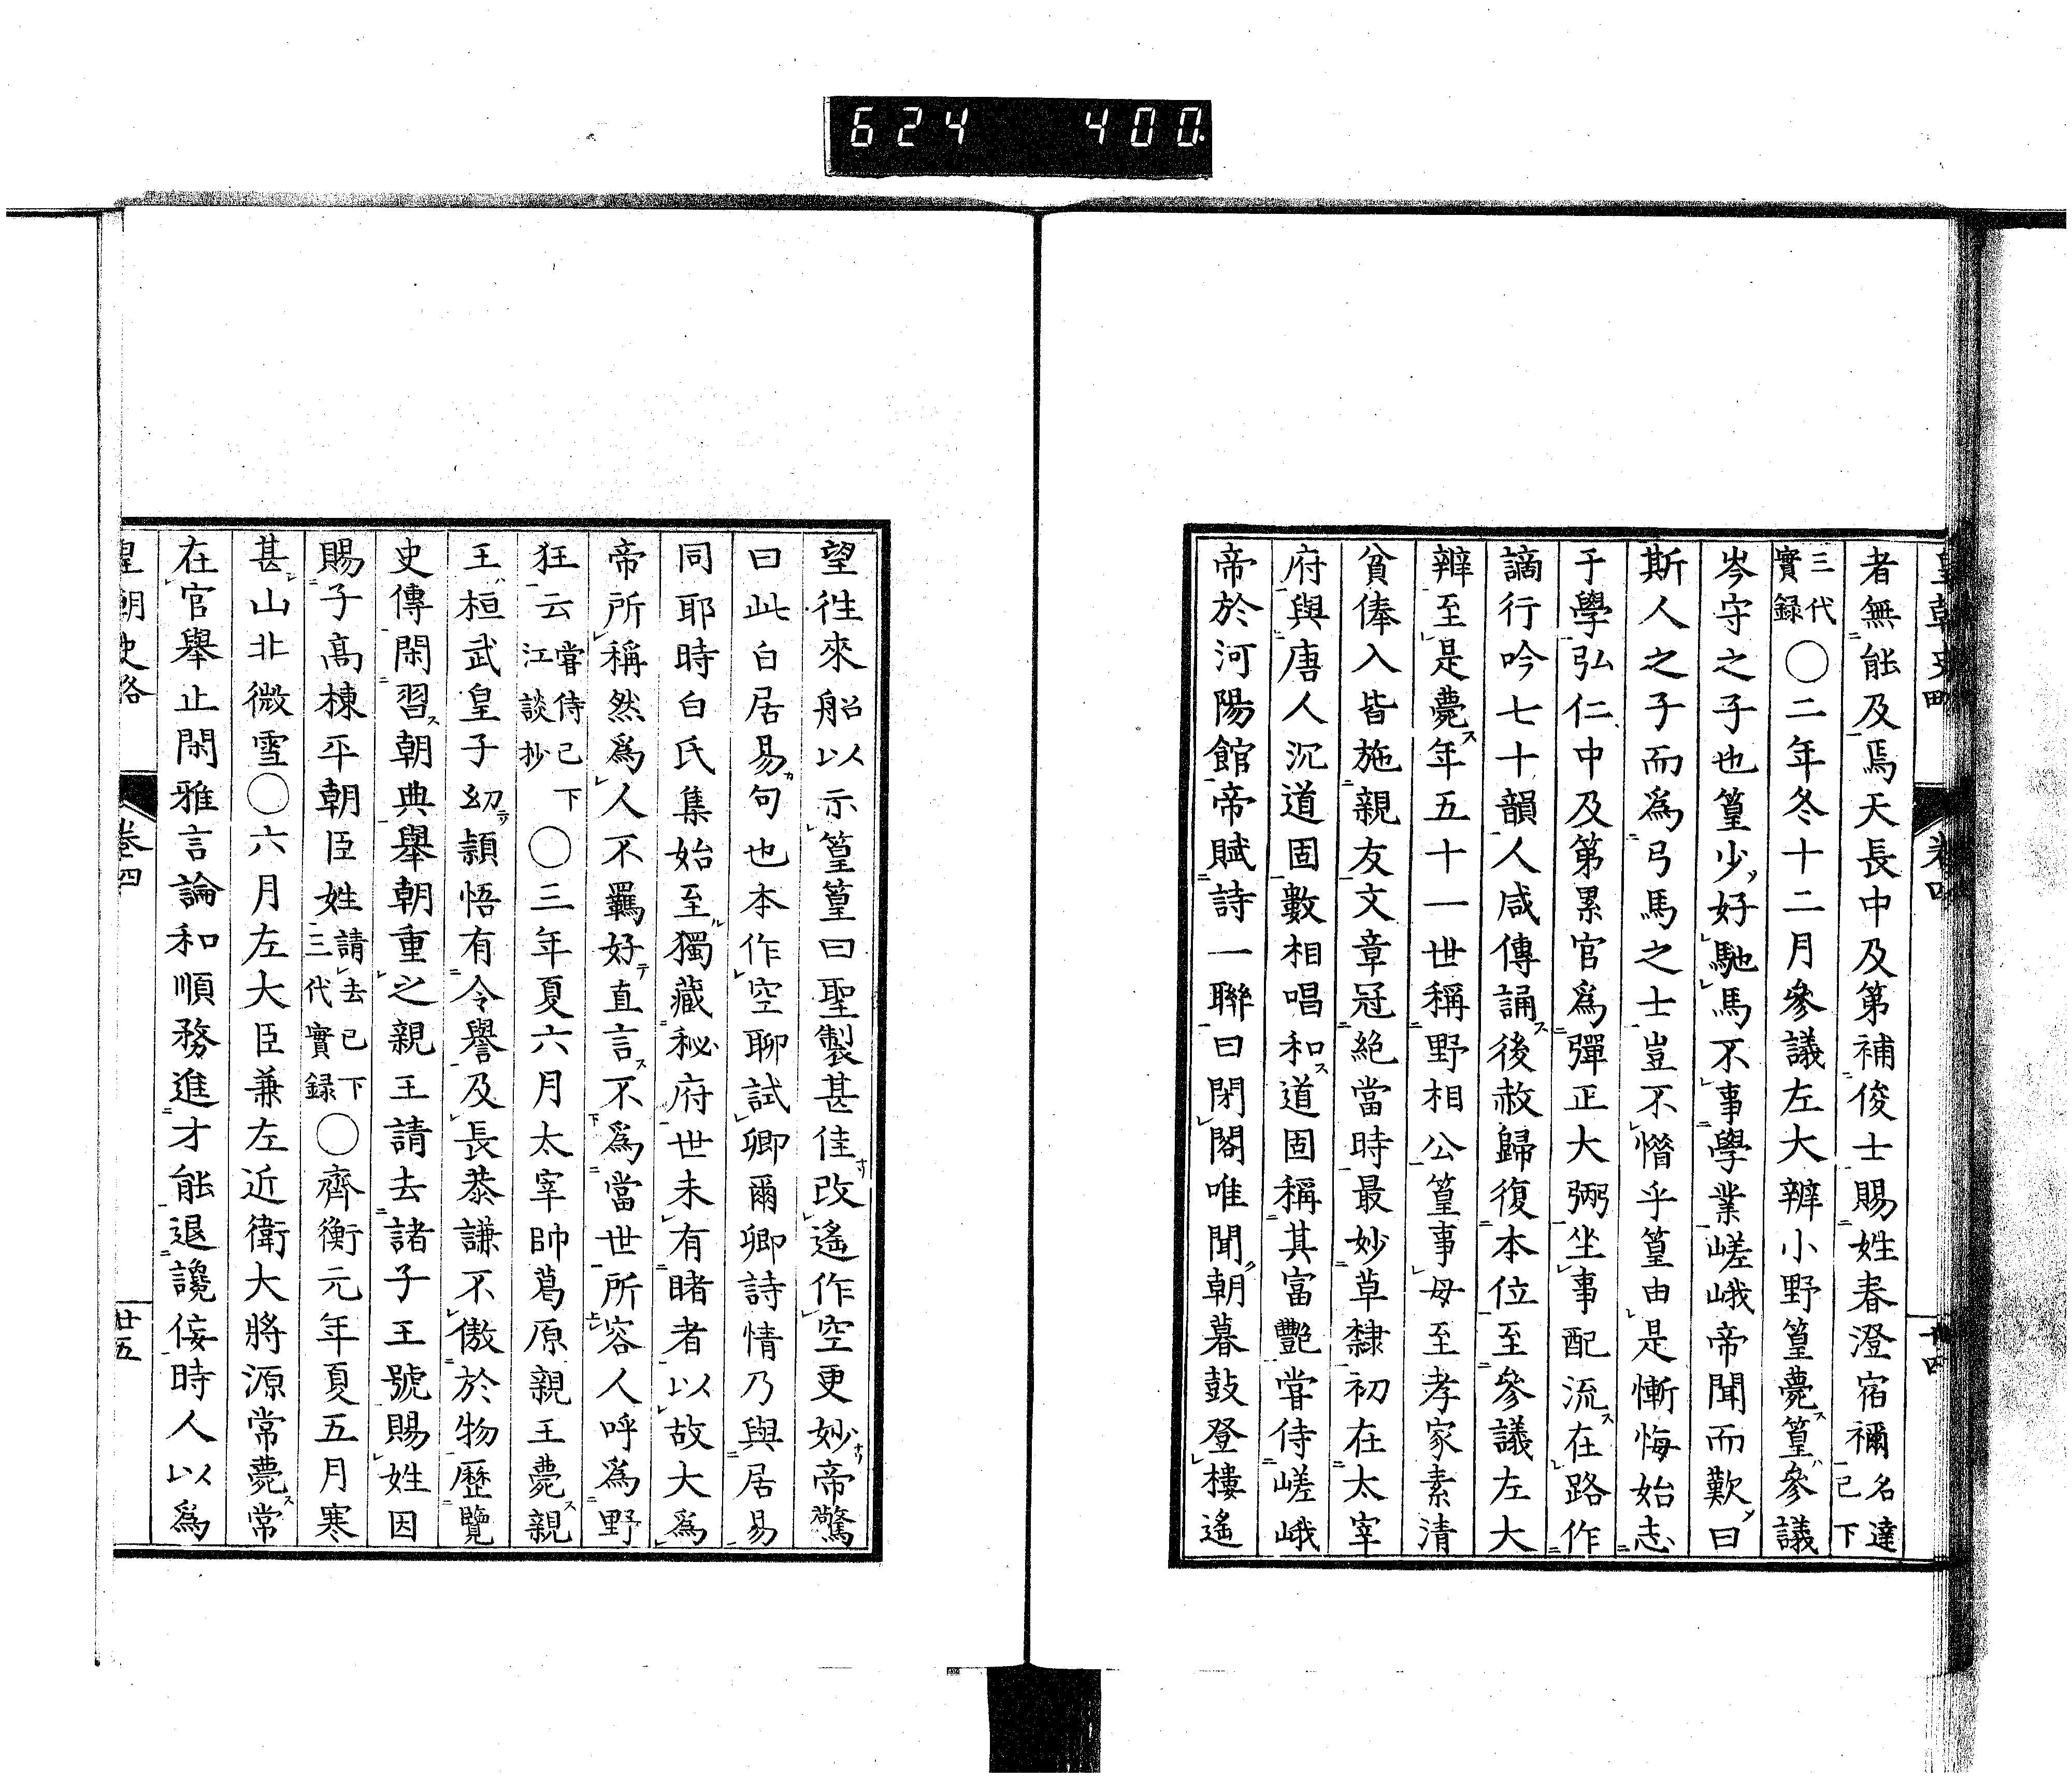 624 400
皇朝史略 卷四
者無能及焉天長中及第補俊士賜姓春澄宿禰名達已下
三代實録〇二年冬十二月參議左大辨小野篁薨篁參議
岑守之子也篁少好馳馬不事學業嵯峨帝聞而歎曰
斯人之子而爲弓馬之士豈不憯乎篁由是慚悔始志
于學弘仁中及第累官爲彈正大弼坐事配流在路作
謫行吟七十韻人咸傳誦後赦歸復本位至參議左大
辨至是薨年五十一世稱野相公篁事母至孝家素清
貧俸入皆施親友文章冠絶當時最妙草隸初在太宰
府與唐人沉道固數相唱和道固稱其富艷嘗侍嵯峨
帝於河陽館帝賦詩一聯曰閉閣唯聞朝暮鼓登樓遙
望徃來船以示篁篁曰聖製甚佳改遙作空更妙帝驚
曰此白居易句也本作空聊試卿爾卿詩情乃與居易
同耶時白氏集始至獨藏秘府世未有睹者以故大爲
帝所稱然爲人不羈好直言不爲當世所容人呼爲野
狂云嘗侍已下江談抄〇三年夏六月太宰帥葛原親王薨親
王桓武皇子幼頴悟有令譽及長恭謙不傲於物歷覽
史傳閑習朝典舉朝重之親王請去諸子王號賜姓因
賜子高棟平朝臣姓請去已下三代實録〇齊衡元年夏五月寒
甚山北微雪〇六月左大臣兼左近衛大將源常薨常
在官舉止閑雅言論和順務進才能退讒侫時人以爲
皇朝史略 卷四 廿五